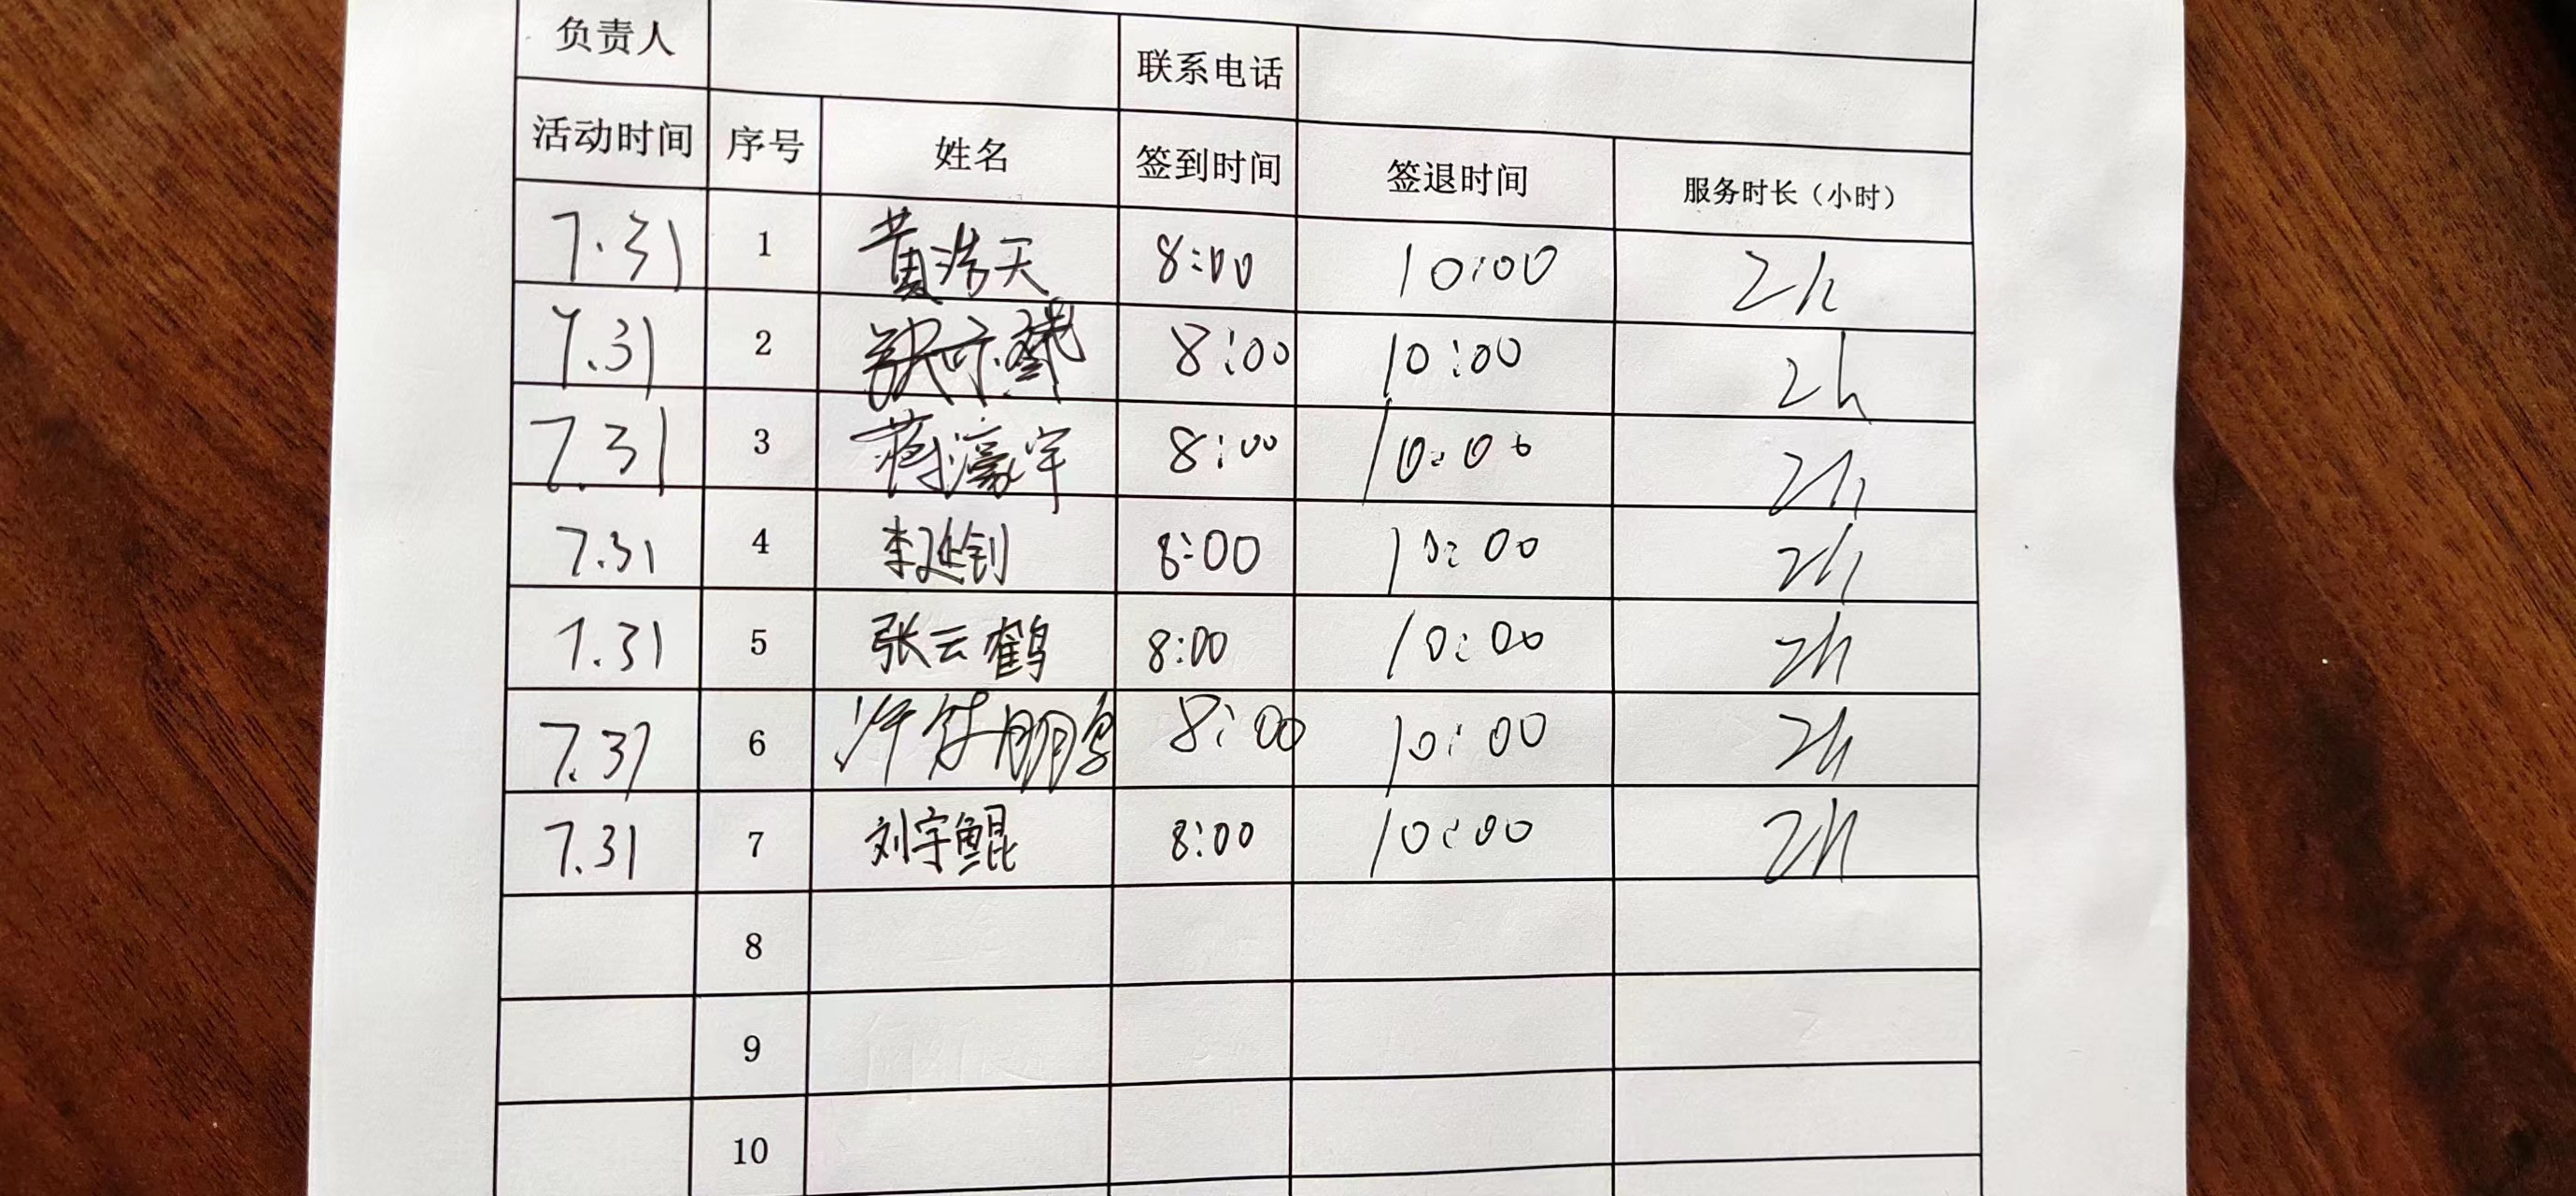 负责人 联系电话
活动时间 序号 姓名 签到时间 签退时间 服务时长（小时）
7.31 1 黄浩天 8:00 10:00 2h
7.31 2 8:00 10:00 2h
7.31 3 蒋濠宇 8:00 10:00 2h
7.31 4 李延钊 8:00 10:00 2h
7.31 5 张云鹤 8:00 10:00 2h
7.31 6 8:00 10:00 2h
7.31 7 刘宇鲲 8:00 10:00 2h
8
9
10